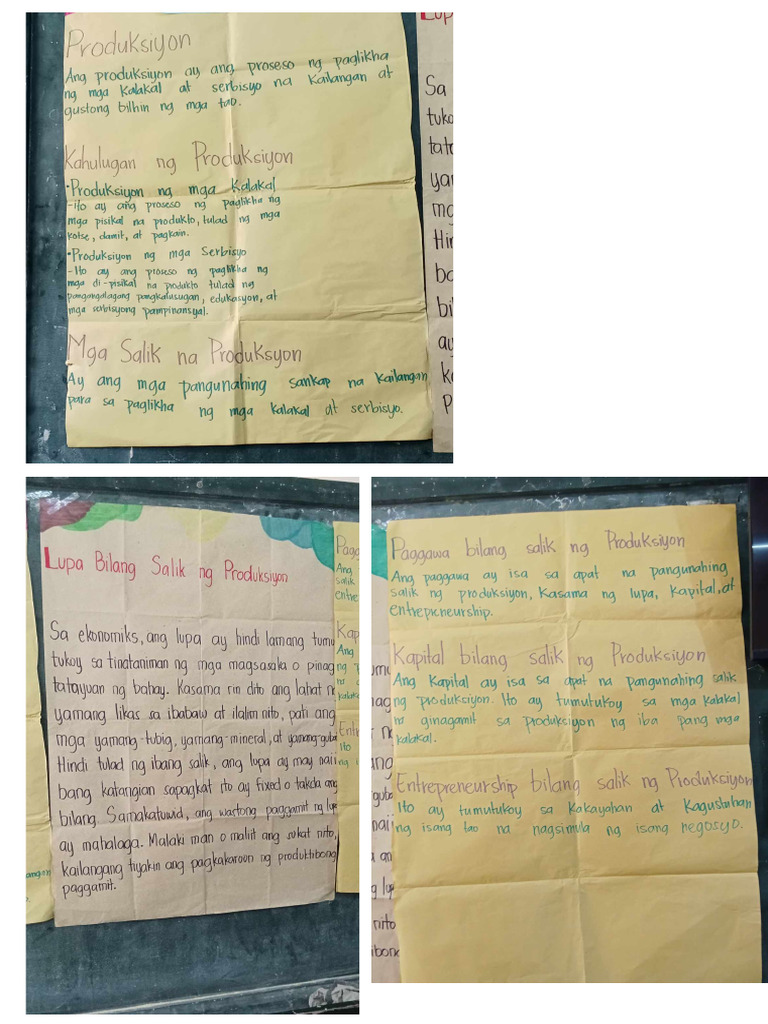 Produksiyon
Ang produksiyon ay ang proseso ng paglikha
ng mga kalakal at serbisyo na kailangan at
gustong bilhin ng mga tao.
Kahulugan ng Produksiyon
•Produksiyon ng mga kalakal
-Ito ay ang proseso ng paglikha ng
mga pisikal na produkto, tulad ng mga
kotse, damit, at pagkain.
•Produksiyon ng mga Serbisyo
-Ito ay ang proseso ng paglikha ng
mga di-pisikal na produkto tulad ng
pangangalagang pangkalusugan, edukasyon, at
mga serbisyong pampinansyal.
Mga Salik na Produksyon
Ay ang mga pangunahing sankap na kailangan
para sa paglikha ng mga kalakal at serbisyo.
Lupa Bilang Salik ng Produksiyon
Sa ekonomiks, ang lupa ay hindi lamang tumu
tukoy sa tinataniman ng mga magsasaka o pinag
tatayuan ng bahay. Kasama rin dito ang lahat n
yamang likas sa ibabaw at ilalim nito, pati ang
mga yamang-tubig, yamang-mineral, at yamang-guba
Hindi tulad ng ibang salik, ang lupa ay may nai
bang katangian sapagkat ito ay fixed o takda ang
bilang. Samakatuwid, ang wastong paggamit ng lupa
ay mahalaga. Malaki man o maliit ang sukat nito,
kailangang tiyakin ang pagkakaroon ng produktibong
paggamit.
Paggawa bilang salik ng Produksiyon
Ang paggawa ay isa sa apat na pangunahing
salik ng produksiyon, kasama ng lupa, kapital, at
entrepreneurship.
Kapital bilang salik ng Produksiyon
Ang kapital ay isa sa apat na pangunahing salik
ng produksiyon. Ito ay tumutukoy sa mga kalakal
na ginagamit sa produksiyon ng iba pang mga
kalakal.
Entrepreneurship bilang salik ng Produksiyon
Ito ay tumutukoy sa kakayahan at kagustuhan
ng isang tao na nagsimula ng isang negosyo.